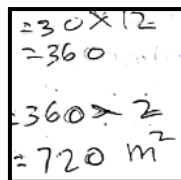 =30×12
=360
=360×2
=720 m²